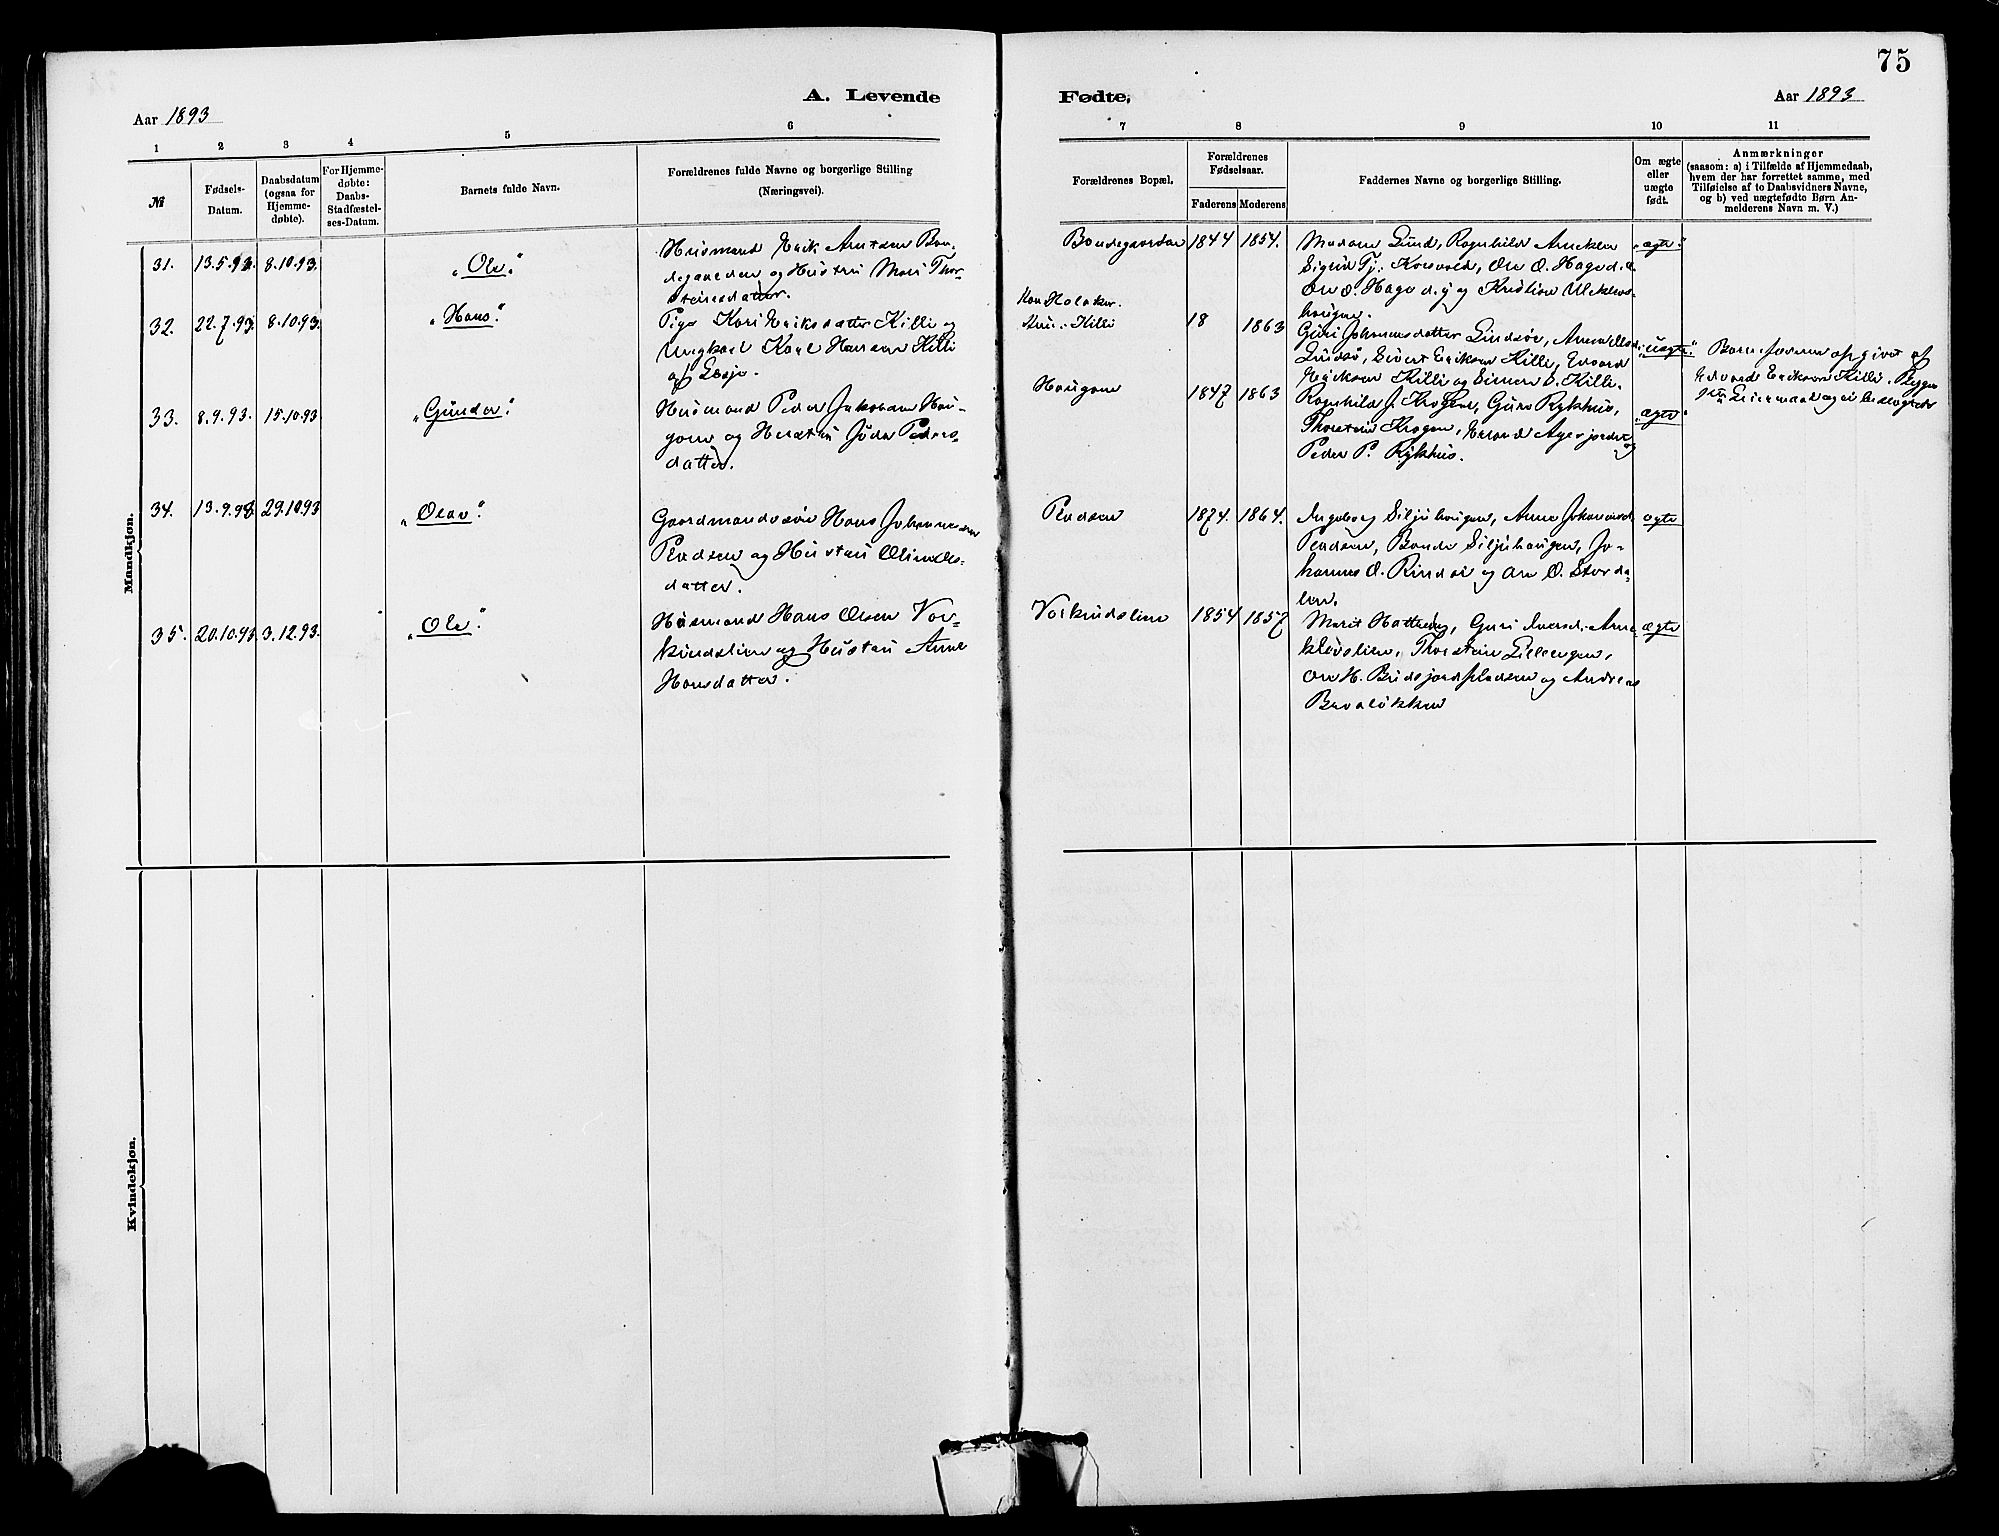 75
A. Levende
Fødte,
Aar 1893
Aar 1893
1 2 3 4 5 6
7 8 9 10 11
№
Fødsels-
Datum.
Daabsdatum
(ogsaa for
Hjemme-
døbte).
For Hjemme-
døbte:
Daabs-
Stadfæstel-
ses-Datum.
Barnets fulde Navn.
Forældrenes fulde Navne og borgerlige Stilling
(Næringsvei).
Forældrenes Bopæl.
Forældrenes
Fødselsaar.
Faderens Moderens
Faddernes Navne og borgerlige Stilling.
Om ægte
eller
uægte
født.
Anmærkninger
(saasom: a) i Tilfælde af Hjemmedaab,
hvem der har forrettet samme, med
Tilføielse af to Daabsvidners Navne,
og b) ved uægtefødte Børn An-
melderens Navn m. V.)
Mandkjøn.
31. 13.5.93. 8.10.93. "Ole".
Husmand Erik Amundsen Bon-
degaarden og Hustru Mari Thor-
steinsdatter.
Bondegaarden 1844 1854.
Madam Lund, Ragnhild
Sigrid Tj. Korsvold, Ole O. Hage d. æ.
Ole O. Hage d. y. og Kristian
haugen.
"ægte".
32. 22.7.93. 8.10.93. "Hans".
Pige Kari Eriksdatter Killi og
Ungkarl Karl Hansen Killi
af Lesje.
Holaker.
Killi
18 1863
Guri Johannesdatter Lindsøe,
Lindsø, Sivert Eriksen Killi, Edvard
Eriksen Killi og Simen S. Killi.
"uægte".
Barnefaderen opgivet af
Edvard Eriksen Killi. Begges
Leiermaal
33. 8.9.93. 15.10.93 "Gunder".
Husmand Peder Jakobsen Hau-
gene og Hustru Peders-
datter.
Haugene 1847 1863
Ragnhild J. Krogen, Guro Rykhus,
Thorstein Krogen, Erland Agesjordet og
Peder P. Rykhus.
"ægte"
34. 13.9.93 29.10.93 "Olav".
Gaardmandssøn Hans Johannessen
Pladsen og Hustru
datter.
Pladsen 1874. 1864.
Ingeborg Siljuhaugen, Anne Johannesd.
Pladsen, Siljuhaugen, Jo-
hannes O. Rindsø og Ole O. Storda-
len.
ægte
35. 20.10.93. 3.12.93. "Ole".
Husmand Hans Olsen Vor-
kindslien og Hustru Anne
Hansdatter.
Vorkindslien 1854 1857
Marit Hattrem, Guri Iversd.
Thorstein Lillengen,
Ole H. Bridsjordpladsen og Andreas
ægte
Kvindekjøn.